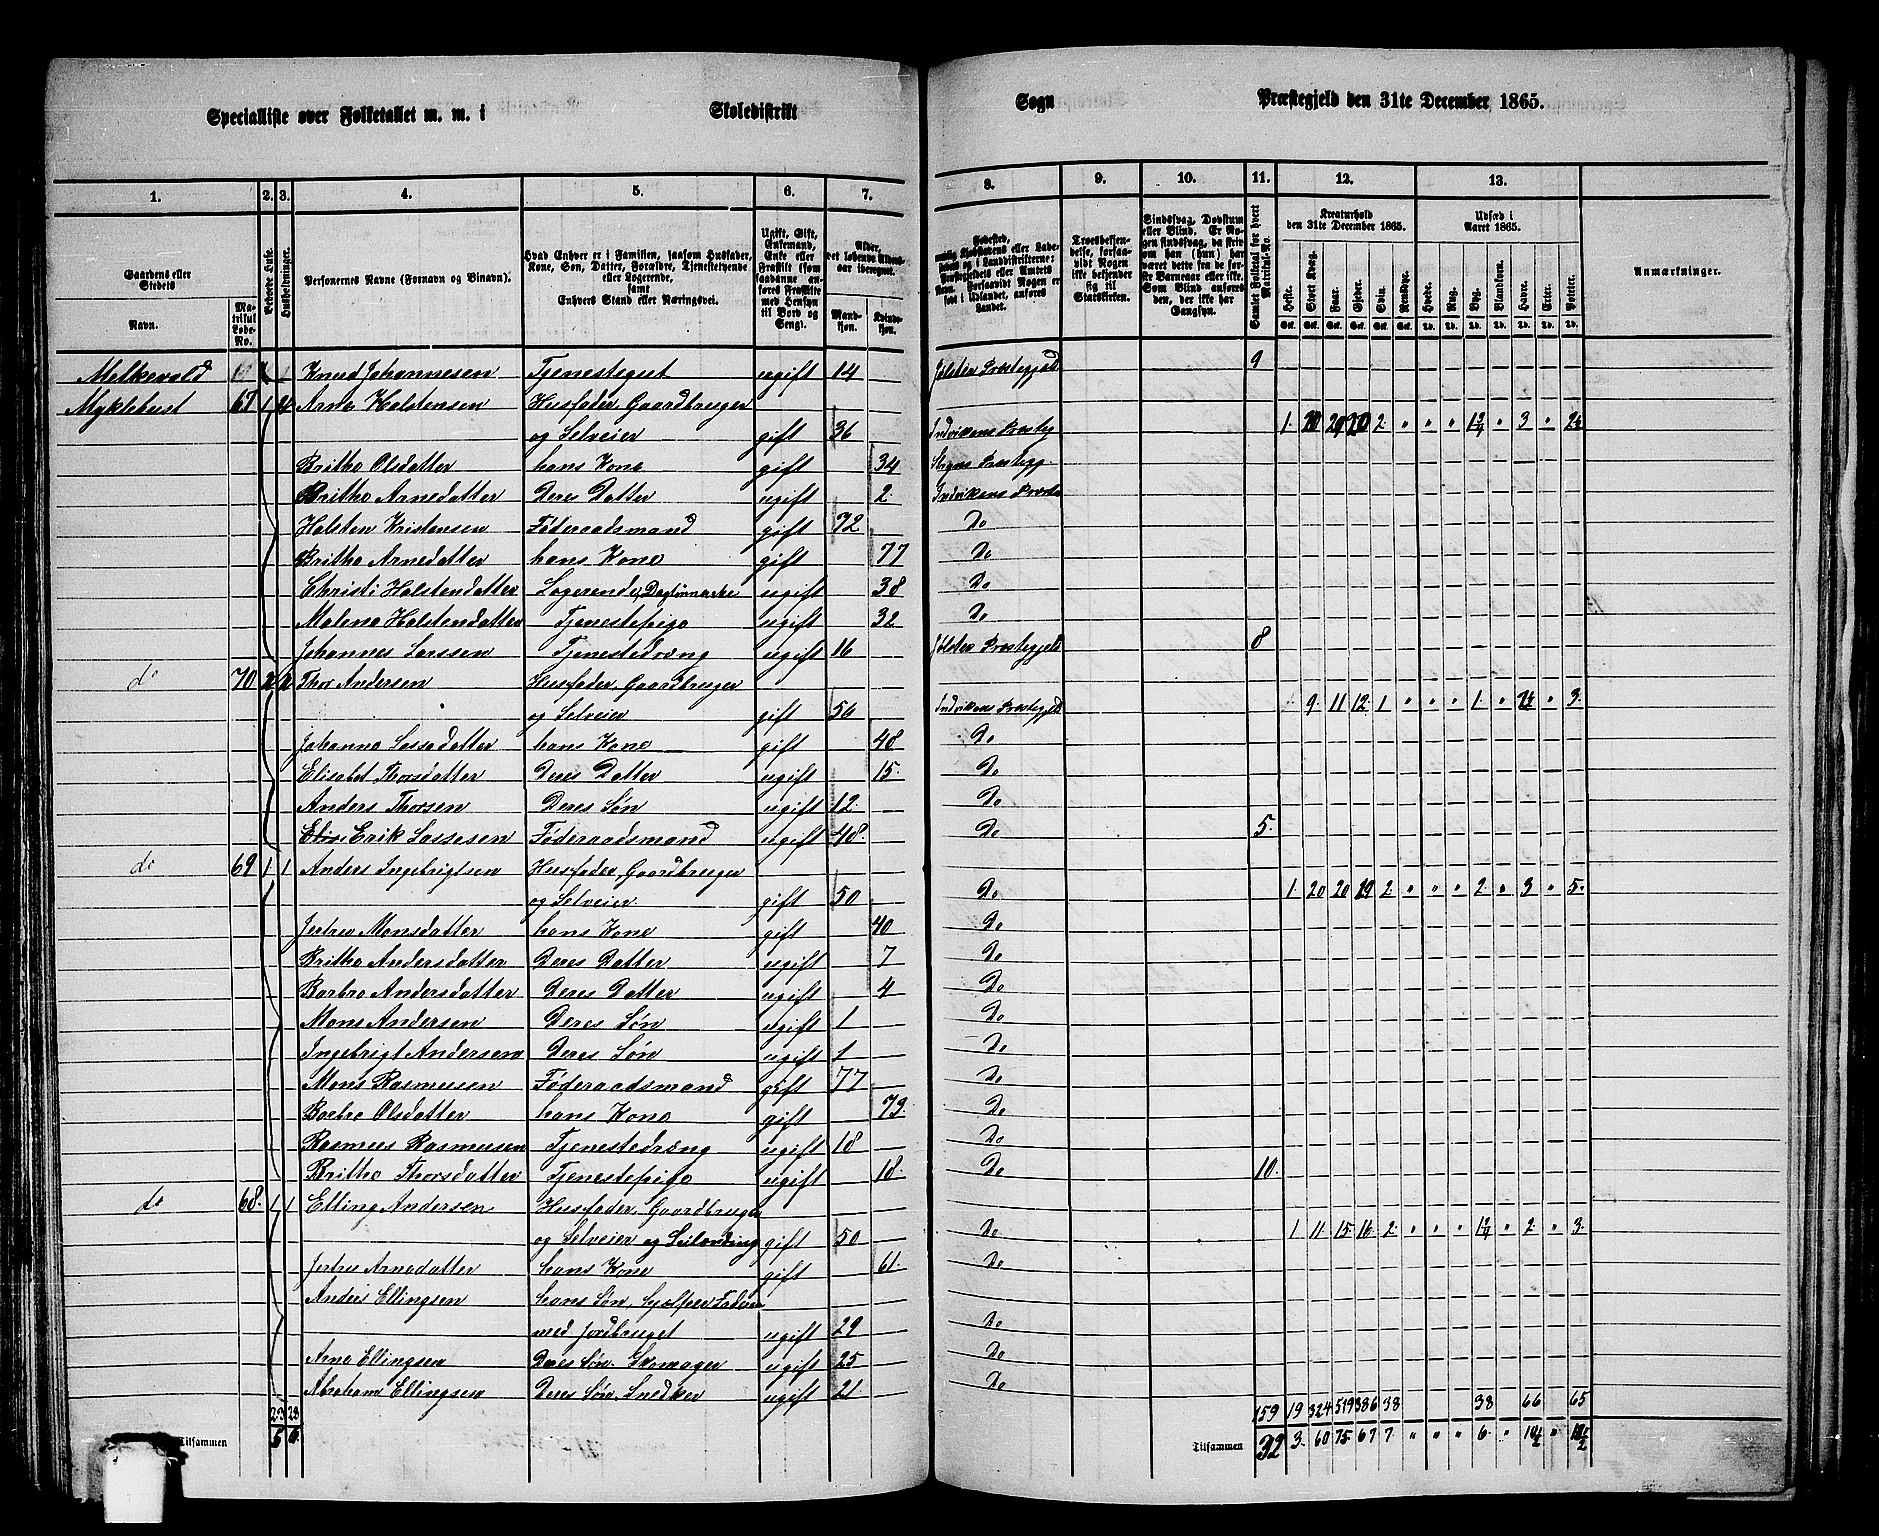 Specialliste over Folketallet m. m. i Skoledistrikt Sogn Præstegjeld den 31te December 1865.
1. 2. 3. 4. 5. 6. 7. 8. 9. 10. 11. 12. 13.
Gaardens eller Stedets Navn. Matrikul Løbe-No. Beboede Huse. Husholdninger. Personernes Navne (Fornavn og Binavn). Hvad Enhver er i Familien, saasom Husfader, Kone, Søn, Datter, Forældre, Tjenestetyende eller Logerende, samt Enhvers Stand eller Næringsvei. Ugift, Gift, Enkemand, Enke eller Fraskilt (som saadanne anføres Fraskilte med Hensyn til Bord og Seng). Alder, det løbende Aldersaar iberegnet. Mandkjøn. Kvindekjøn.
Fødested, Troesbekjendelse, forsaavidt Nogen ikke bekjender sig til Statskirken. Sindssvag, Døvstum eller Blind. Samlet Folketal for hvert Matrikul-No. Kreaturhold den 31te December 1865. Udsæd i Aaret 1865. Anmærkninger.
Heste. Stort Kvæg. Faar. Gjeder. Sviin. Rensdyr. Hvede. Rug. Byg. Blandkorn. Havre. Erter. Poteter.
Melkevold 1 Knud Johannesen Tjenestegut ugift 14 Jølster Præstegjeld 9
Myklebust 67 1 Arne Halstensen Husfader, Gaardbruger
og Selveier gift 36 Indvikens Præstg 1 2 3
Britha Olsdatter hans Kone gift 34 Stryns Præstegj.
Britha Arnedatter Deres Datter ugift 2 Indvikens Præste
Halsten Kristensen Føderaadsmand gift 72 Do
Britha Arnedatter hans Kone gift 77 Do
Christi Halstendatter Logerende, ugift 38 Do
Malena Halstendatter Tjenestepige ugift 32 Do
Johannes Larssen Tjenestedræng ugift 16 Jølster Præstegjeld 8
do 70 2 2 Thor Andersen Husfader, Gaardbruger
og Selveier gift 56 Indvikens Præstegjeld 9 11 12 1 " " " 1 " " 3
Johanna Lassedatter hans Kone gift 48 Do
Elisabet Thorsdatter Deres Datter ugift 15 Do
Anders Thorsen Deres Søn ugift 12 Do
Erik Lassesen Føderaadsmand ugift 48 Do 5
do 69 1 1 Anders Ingebrigtsen Husfader, Gaardbruger
og Selveier gift 50 Do 1 20 20 19 2 " " " 2 " 3 " 5
Jertru Monsdatter hans Kone gift 40 Do
Britha Andersdatter Deres Datter ugift 7 Do
Barbra Andersdatter Deres Datter ugift 4 Do
Mons Andersen Deres Søn ugift 1 Do
Ingebrigt Andersen Deres Søn ugift 1 Do
Mons Rasmusen Føderaadsmand gift 77 Do
Barbra Olsdatter hans Kone gift 73 Do
Rasmus Rasmusen Tjenestedræng ugift 18 Do
Britha Thorsdatter Tjenestepige ugift 18 Do 10
do 68 1 1 Elling Andersen Husfader, Gaardbruger
og Selveier og gift 50 Do 1 11 15 16 2 " " " " 2 " 3
Jertru Arnedatter hans Kone gift 61 Do
Anders Ellingsen hans Søn, hjælper Faderen
med Jordbruget ugift 29 Do
Arne Ellingsen Deres Søn. Skomager ugift 25 Do
Abraham Ellingsen Deres Søn, Snedker ugift 21 Do
23 28 159 19 324 519 386 38 38 66 65
Tilsammen 5 6 Tilsammen 32 3 60 75 67 7 " " " 6 " 10½ "